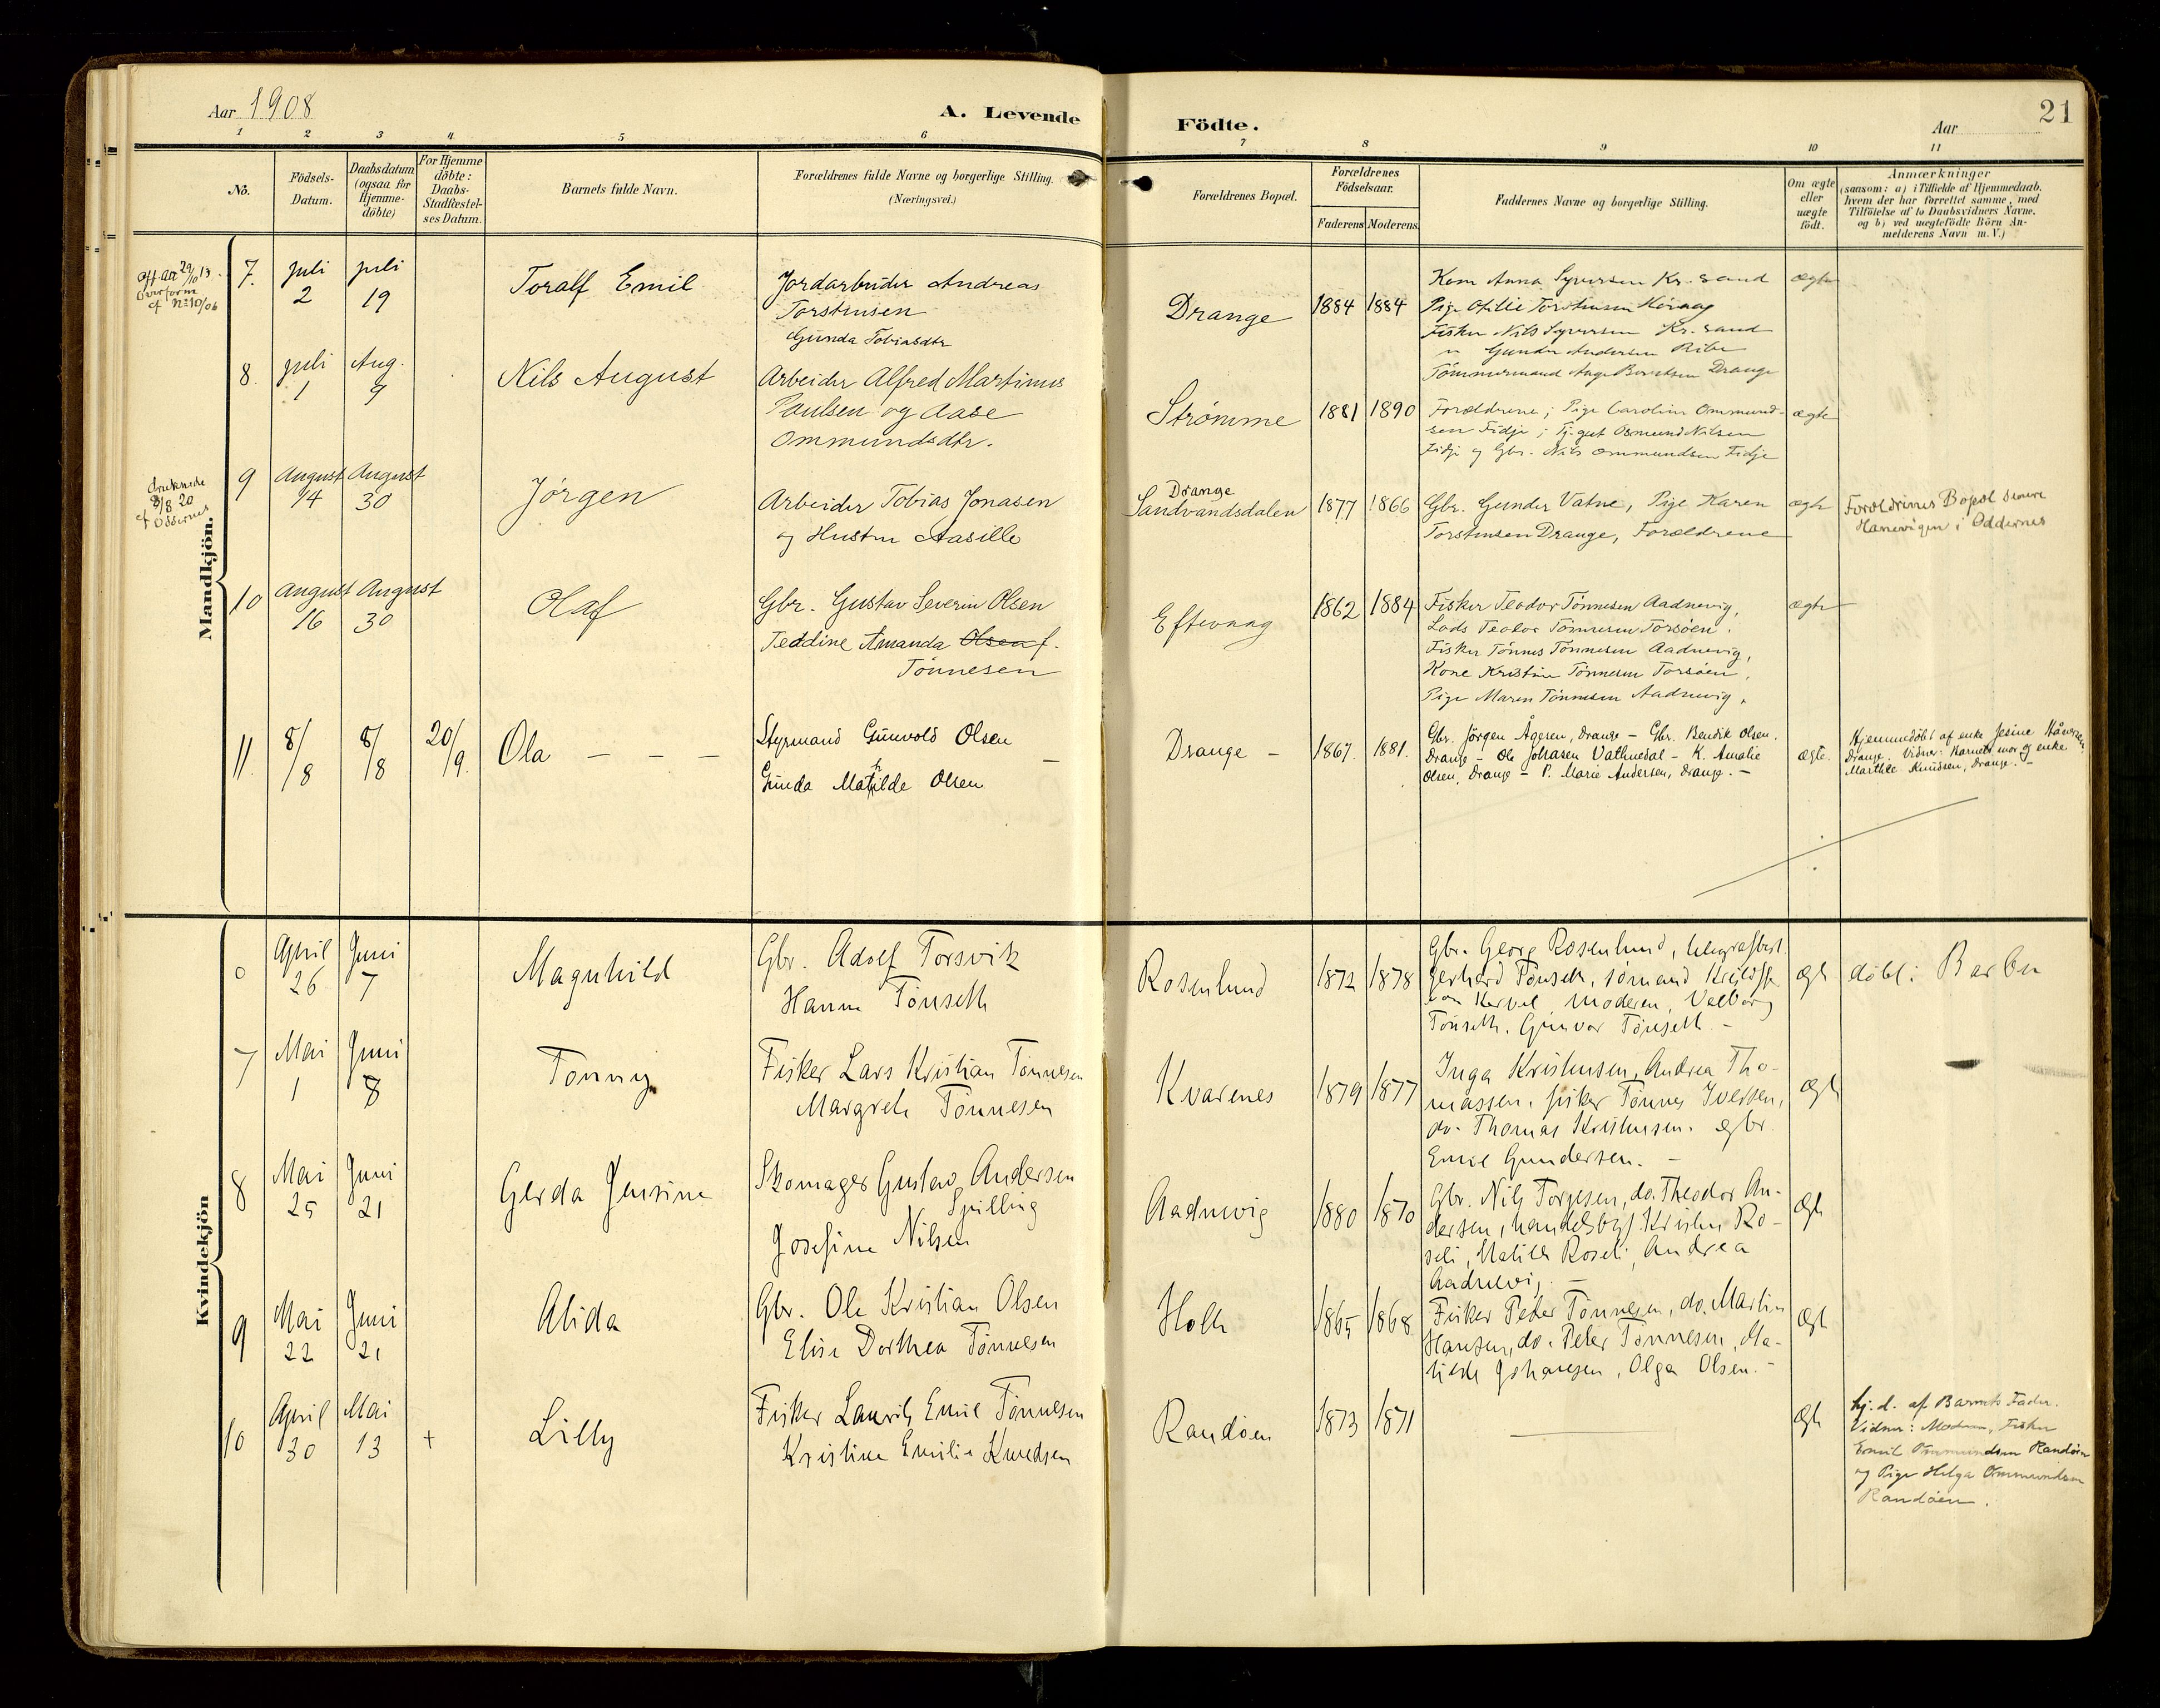 Aar 1908
A. Levende
Födte.
Aar
21
1 2 3 4 5 6 7 8 9 10 11
No.
Födsels-
Datum.
Daabsdatum
(ogsaa for
Hjemme-
döbte)
For Hjemme
döbte:
Daabs-
Stadfæstel-
ses Datum.
Barnets fulde Navn.
Forældrenes fulde Navne og borgerlige Stilling.
(Næringsvei.)
Forældrenes Bopæl.
Forældrenes
Födselsaar.
Faderens
Moderens
Faddernes Navne og borgerlige Stilling.
Om ægte
eller
uægte
födt.
Anmærkninger
(saasom: a) i Tilfælde af Hjemmedaab.
hvem der har forrettet samme, med
Tilföielse af to Daabsvidners Navne,
og b) ved uægtefödte Börn An-
melderens Navn m. V.)
Mandkjön.
7.
juli
2
juli
19
Toralf Emil
Jordarbeider Andreas
Torstensen
Gunda Tobiasdtr
Drange
1884
1884
Kone Anna Syversen Kr.sand
Pige Otilie Torstensen
Fisker Nils Syversen Kr.sand
" Gunder Andersen Ribe
Tømmermand Aage Berntsen Drange
ægte
8.
juli
1
Aug.
9
Nils August
Arbeider Alfred Martinus
Paulsen og Aase
Ommundsdtr.
Strømme
1881
1890
Forældrene; Pige Caroline Ommund-
sen Fidje; Tj.gut Osmund Nilsen
Fidje og Gbr. Nils Ommundsen Fidje
ægte
druknede
8/8 20
cf Oddernes
9
August
14
August
30
Jørgen
Arbeider Tobias Jonasen
og Hustru Aasille
Drange
Sandvandsdalen
1877
1866
Gbr. Gunder Vatne, Pige Karen
Torstensen Drange, Forældrene
ægte
Forældrenes Bopæl senere
Hanevigen i Oddernes
10
August
16
August
30
Olaf
Gbr. Gustav Severin Olsen
Teddine Amanda Olsen f.
Tønnesen
Eftevaag
1862
1884
Fisker Teodor Tønnesen Aadnevig,
Lods Teodor Tønnesen Torsøen,
Fisker Tønnes Tønnesen Aadnevig,
Kone Kristine Tønnesen Torsøen,
Pige Maren Tønnesen Aadnevig.
ægte
11.
8/8
8/8
20/9.
Ola — — —
Styrmand Gunvold Olsen
Gunda Mathilde Olsen
Drange –
1867.
1881.
Gbr. Jørgen Ågesen, Drange – Gbr. Bendik Olsen,
Drange – Ole Johnsen Vatnedal – K. Amalie
Olsen, Drange – P. Marie Andersen, Drange. –
ægte.
Hjemmedøbt af enke Jesine Håversen,
Drange. Vidner: Barnets mor og enke
Marthe Knudsen, Drange. –
Kvindekjön
6
April
26
Juni
7
Magnhild
Gbr. Adolf Torsvik
Hanne Tönseth
Rosenlund
1872
1878
Gbr. Georg Rosenlund, telegrafbest.
Gerhard Tönseth, sömand Kristoff
von Kervel, Moderen, Valborg
Tönseth, Gunvor Tönseth. –
Ægte
döbt: Barbu
7
Mai
1
Juni
8
Tonny
Fisker Lars Kristian Tönnesen
Margrete Tönnesen
Kvarenes
1879
1877
Inga Kristensen, Andrea Tho-
massen, fisker Tönnes Iversen,
do. Thomas Kristensen. gbr.
Emil Gundersen. –
Ægte
8
Mai
25
Juni
21
Gerda Jensine
Skomager Gustav Andersen
Spilling
Josefine Nilsen
Aadnevig
1880
1870
Gbr. Nils Torjesen, do. Theodor An-
dersen, handelsbest. Kristen Ro-
seli, Matilde Roseli, Andrea
Aadnevig. –
Ægte
9
Mai
22
Juni
21
Alida
Gbr. Ole Kristian Olsen
Elise Dorthea Tönnesen
Holte
1865
1868
Fisker Peter Tönnesen, do. Martin
Hansen, do. Peter Tönnesen, Ma-
tilde Johansen, Olga Olsen. –
Ægte
10
April
30
Mai
13
+
Lilly
Fisker Laurits Emil Tönnesen
Kristine Emilie Knudsen
Randöen
1873
1871
Ægte
hj.d. af Barnets Fader.
Vidner: Moderen, Fisker
Emil Ommundsen Randöen
og Pige Helga Ommundsen
Randöen.